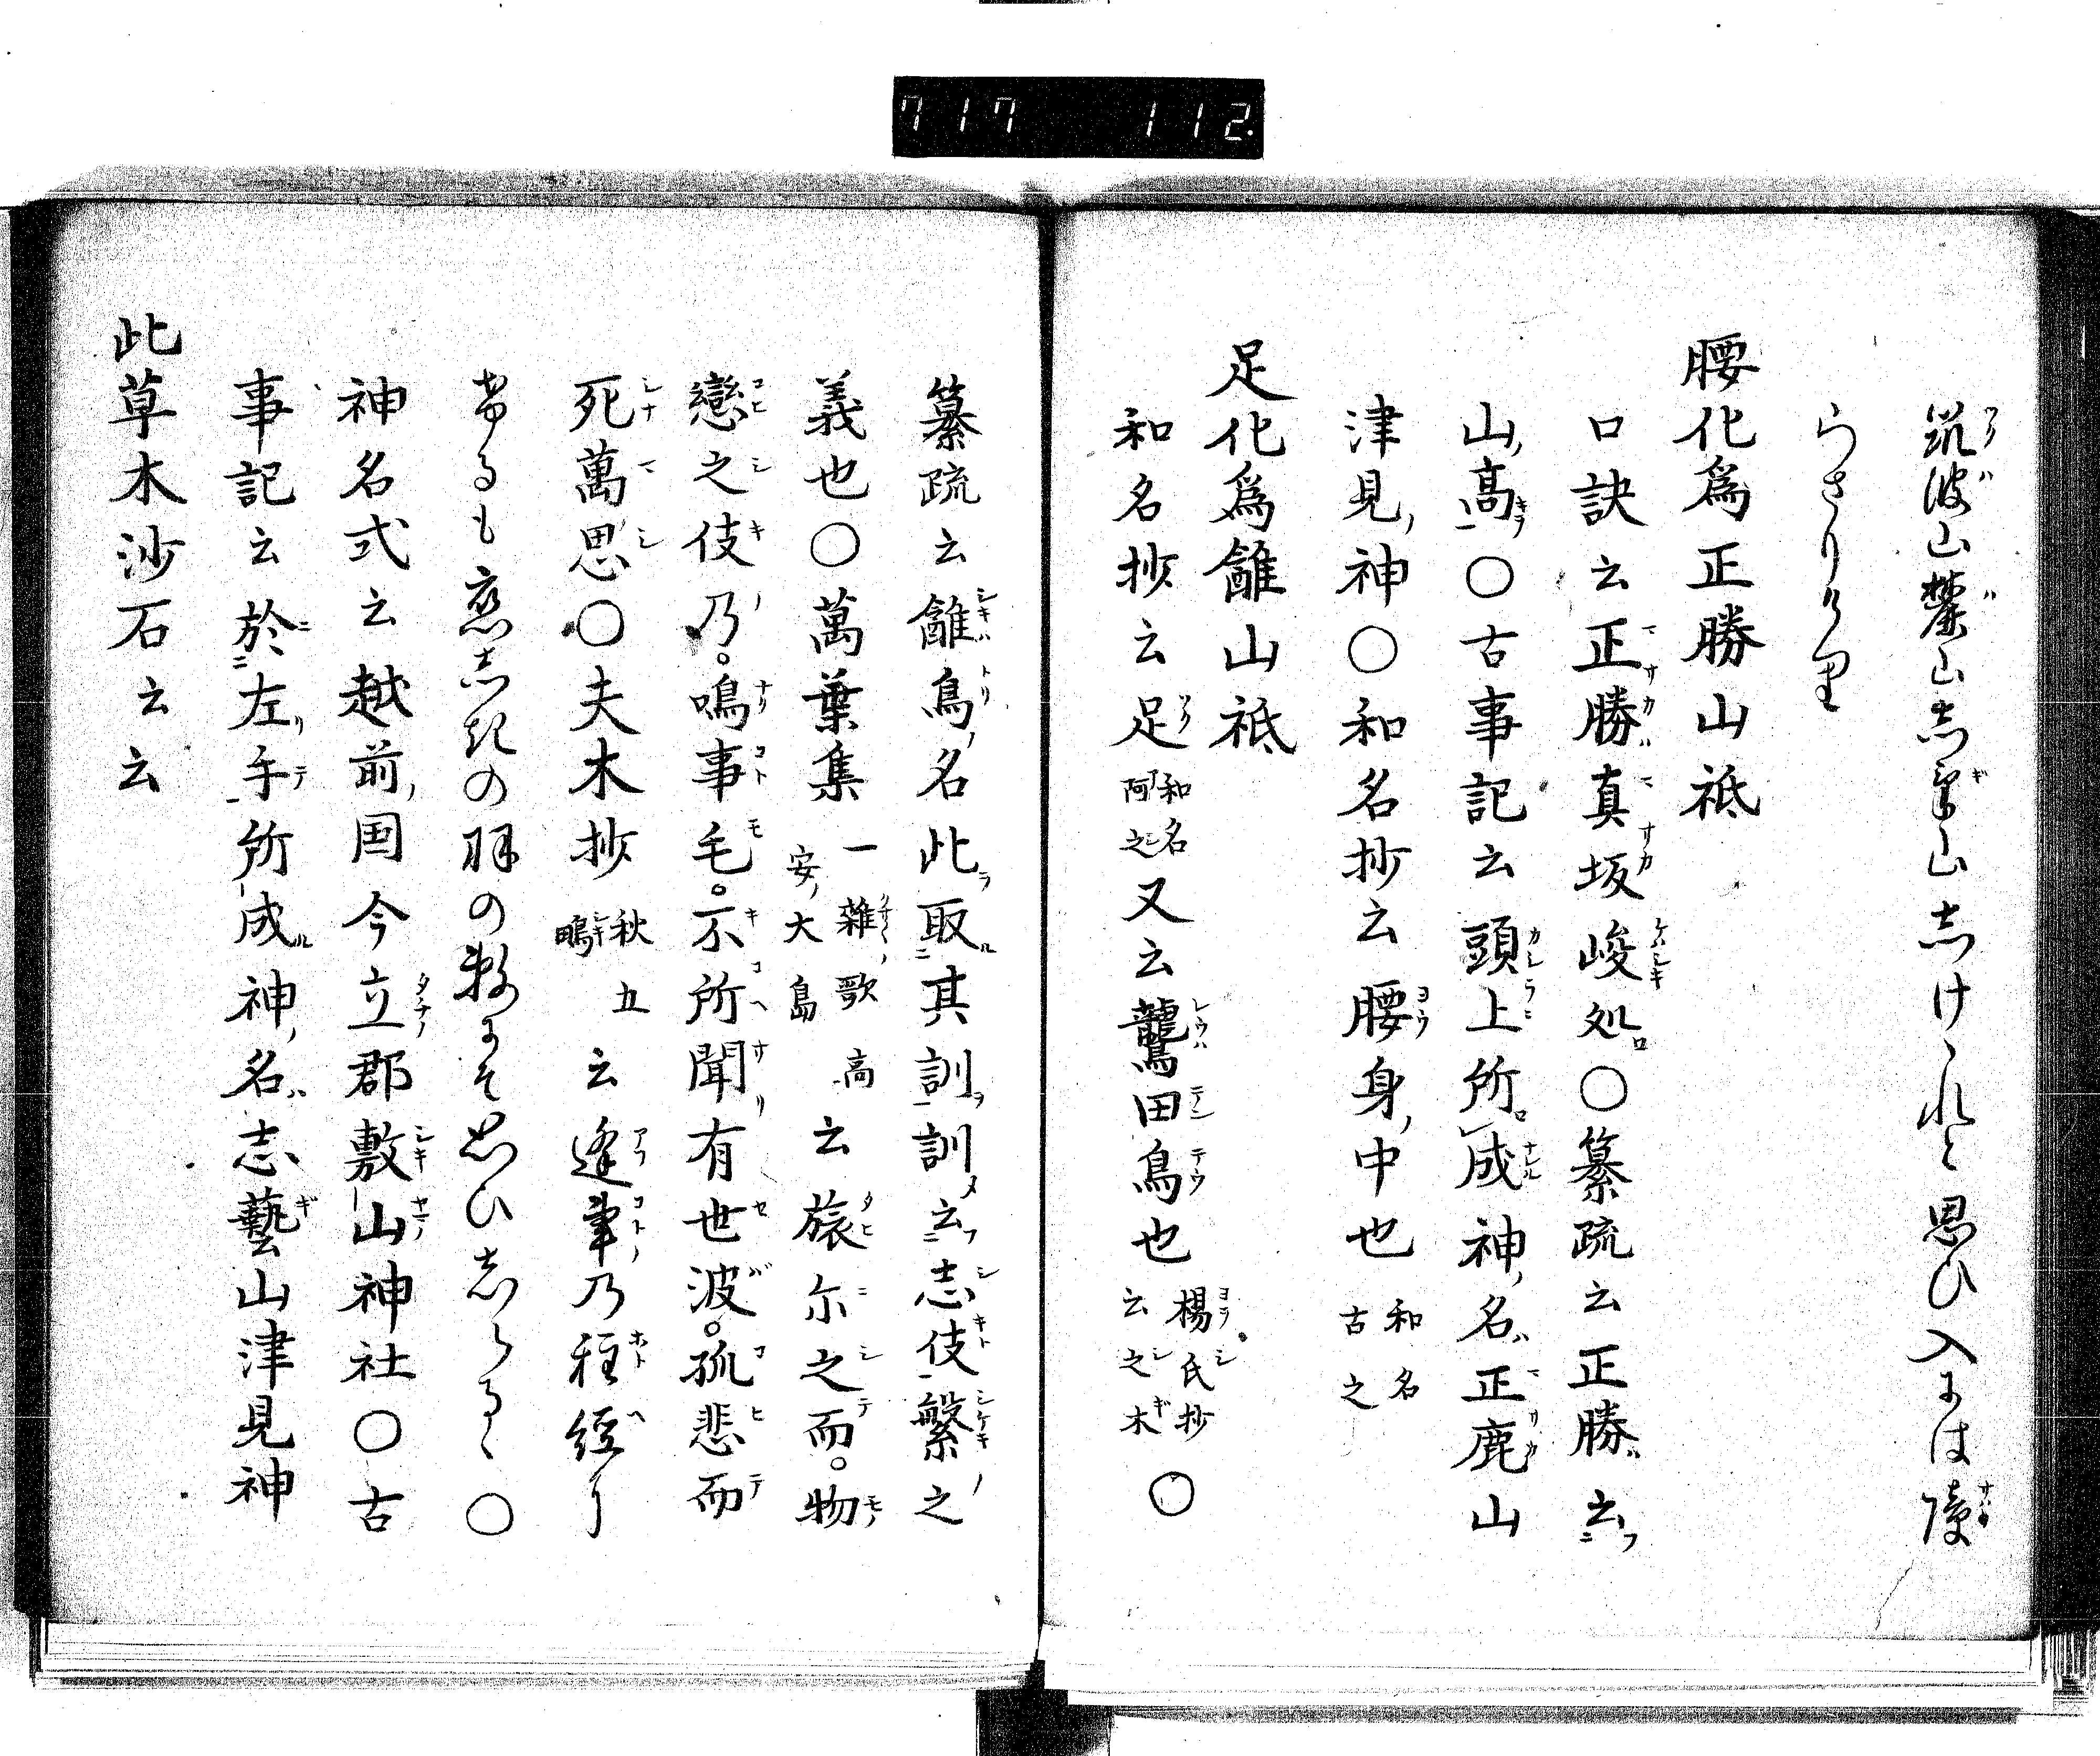 717 112
筑波山麓山志繁山志けゝれと思ひ入には障
らさりけり
腰化為正勝山祇
口訣云正勝真坂峻処〇纂疏云正勝云
山高〇古事記云頭上所成神名正鹿山
津見神〇和名抄云腰身中也和名古之
足化為雝山祇
和名抄云足和名阿之又云鸗田鳥也楊氏抄云之木〇
纂疏云雝鳥名此取其訓訓云志伎繁之
義也〇萬葉集一雜歌高安大島云旅尓之而物
戀之伎乃鳴事毛不所聞有世波孤悲而
死萬思〇夫木抄秋五鴫云逢事乃程経
るも恋志きの羽の数にそ思ひ志らるゝ〇
神名式云越前国今立郡敷山神社〇古
事記云於左手所成神名志藝山津見神
此草木沙石云云